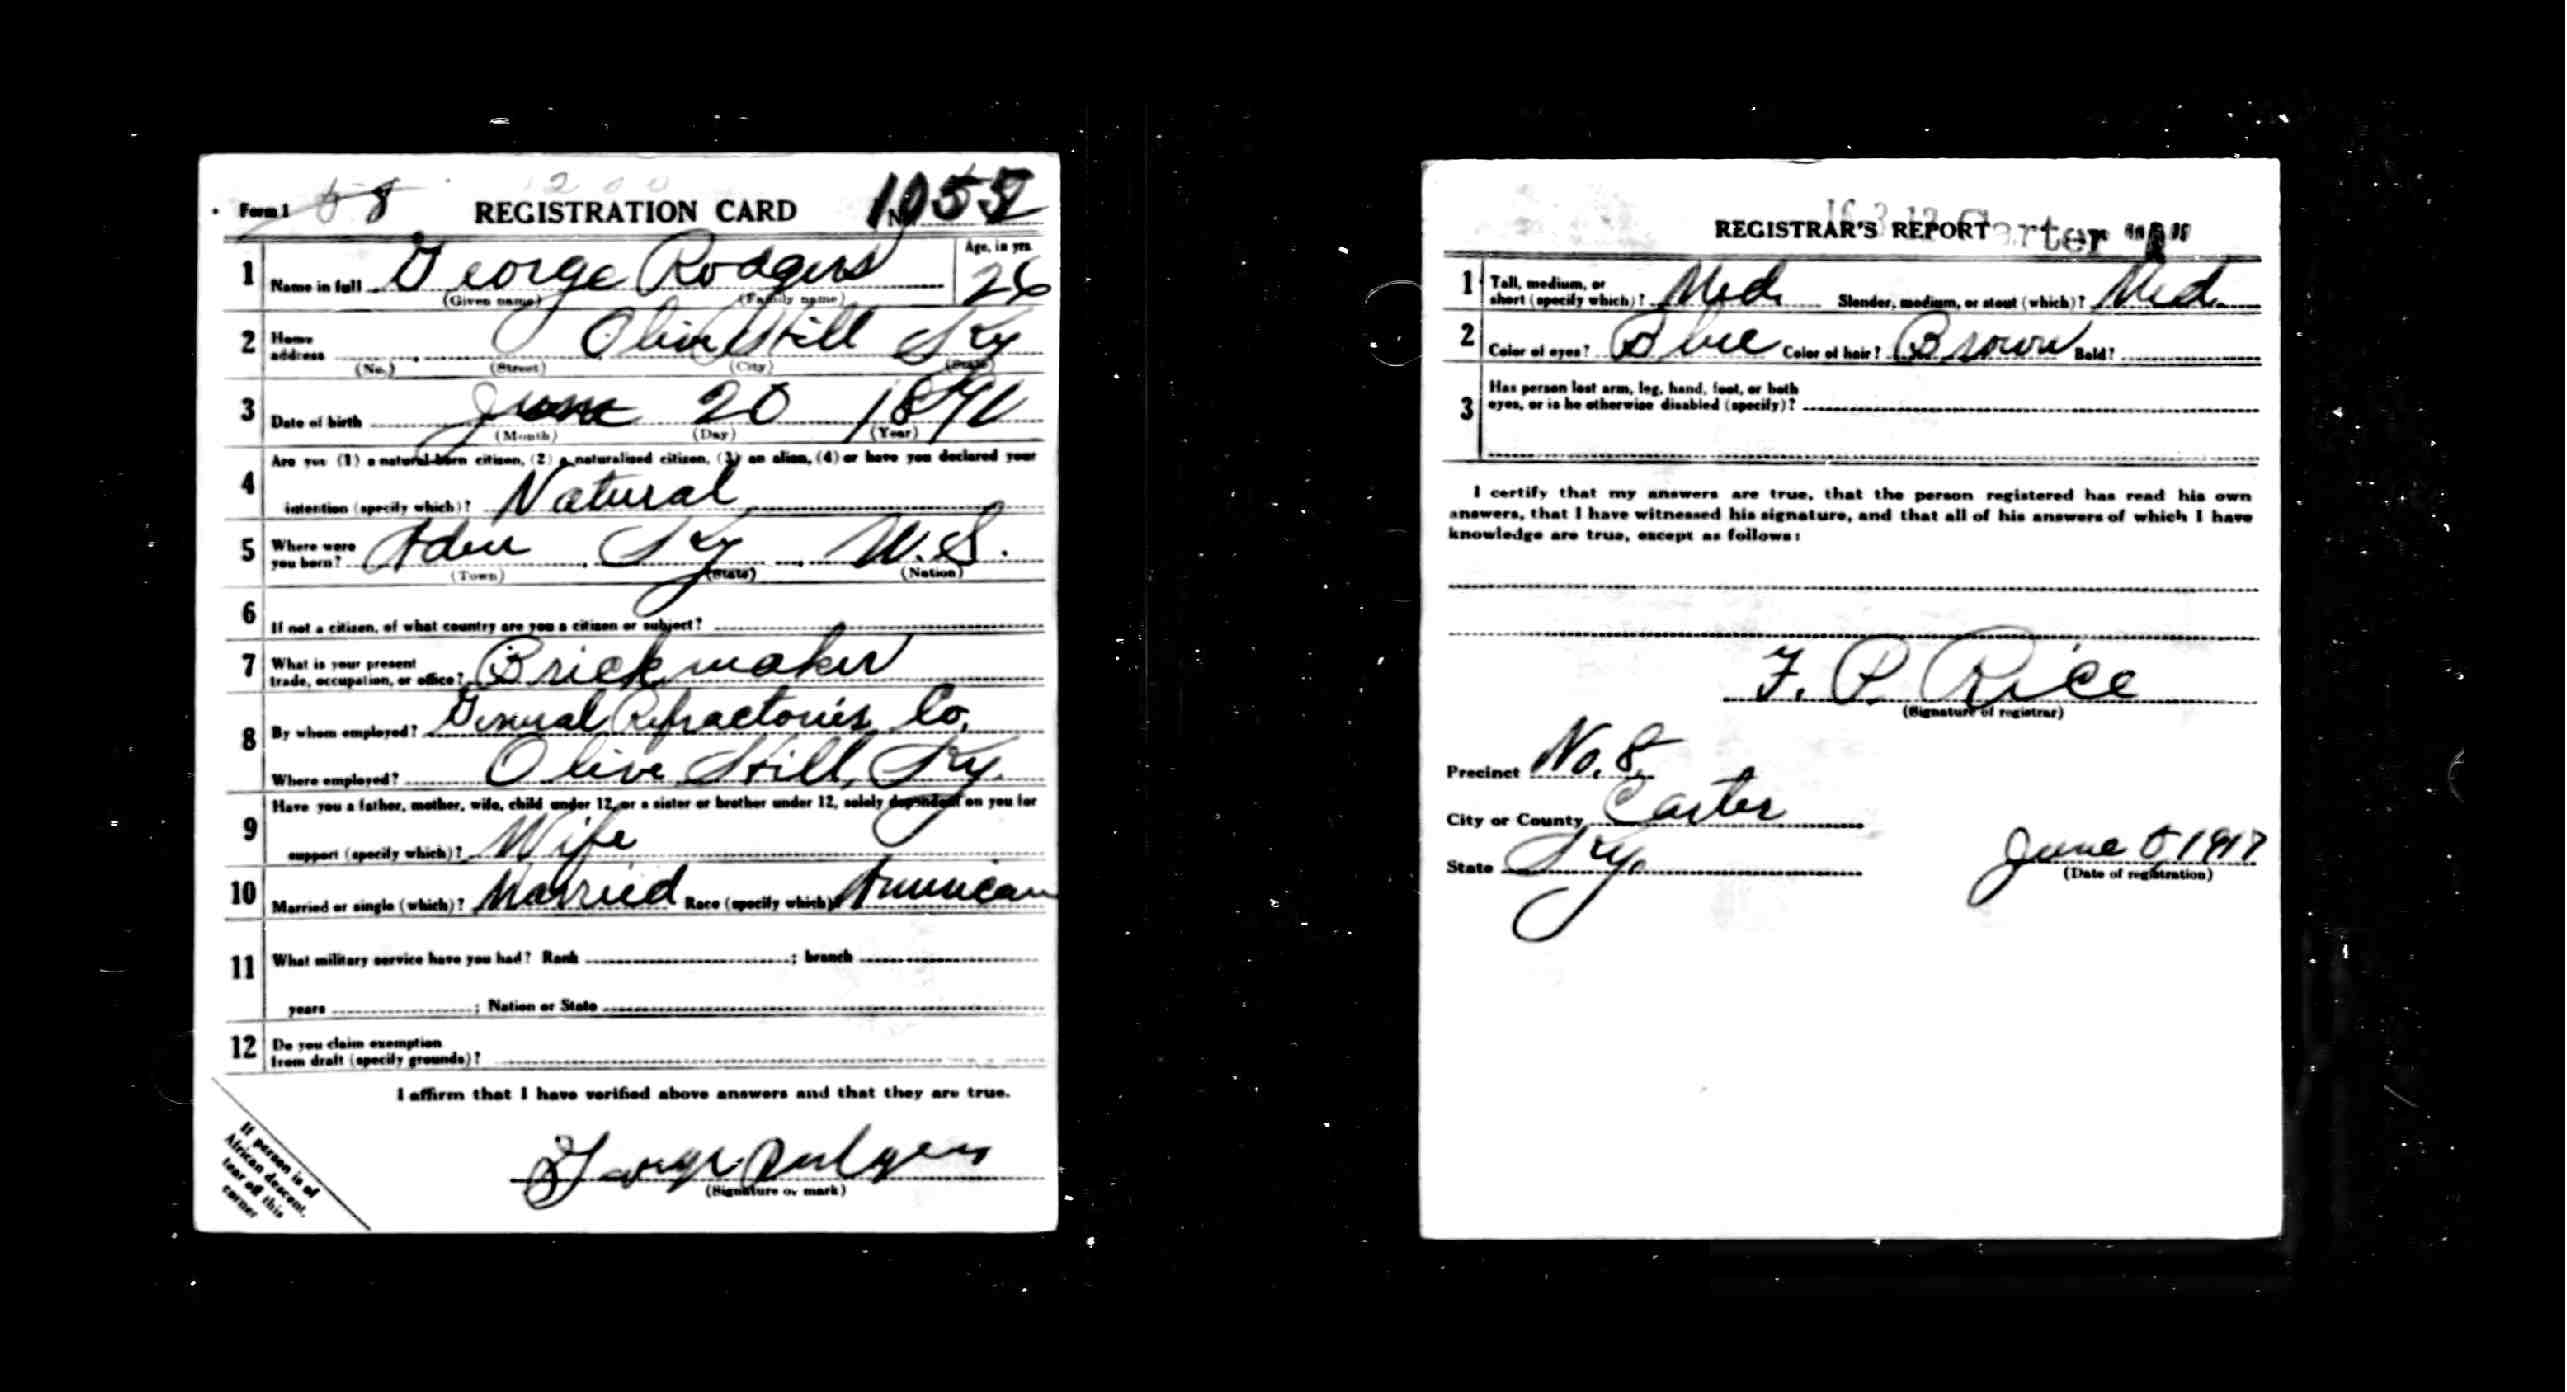 Form 1 58 REGISTRATION CARD No.
1 Name in full George Rodgers Age, in yrs. 26
(Given name) (Family name)
2 Home address Olive Hill Ky
(No.) (Street) (City) (State)
3 Date of birth June 20 1890
(Month) (Day) (Year)
4 Are you (1) a natural-born citizen, (2) a naturalized citizen, (3) an alien, (4) or have you declared your
intention (specify which)? Natural
5 Where were you born? Aden Ky U.S.
(Town) (State) (Nation)
6 If not a citizen, of what country are you a citizen or subject?
7 What is your present trade, occupation, or office? Brickmaker
8 By whom employed? General Refractories Co,
Where employed? Olive Hill, Ky.
9 Have you a father, mother, wife, child under 12, or a sister or brother under 12, solely dependent on you for
support (specify which)? Wife
10 Married or single (which)? Married Race (specify which)? American
11 What military service have you had? Rank ; branch
years ; Nation or State
12 Do you claim exemption from draft (specify grounds)?
I affirm that I have verified above answers and that they are true.
George Rodgers
(Signature or mark)
If person is of
African descent,
tear off this
corner
REGISTRAR'S REPORT
1 Tall, medium, or short (specify which)? Med. Slender, medium, or stout (which)? Med.
2 Color of eyes? Blue Color of hair? Brown Bald?
3 Has person lost arm, leg, hand, foot, or both
eyes, or is he otherwise disabled (specify)?
I certify that my answers are true, that the person registered has read his own
answers, that I have witnessed his signature, and that all of his answers of which I have
knowledge are true, except as follows:
F. P. Rice
(Signature of registrar)
Precinct No. 8
City or County Carter
State Ky. June 5 1917
(Date of registration)